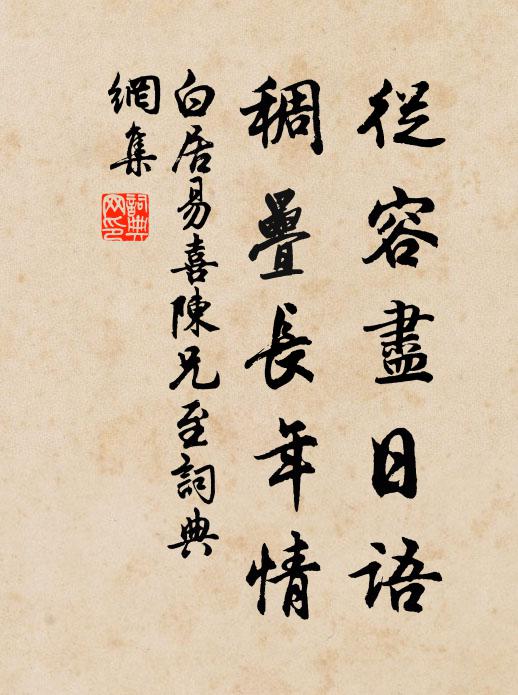 從容盡日語
稠疊長年情
白居易喜陳兄至詞典
網集
詞典
网印